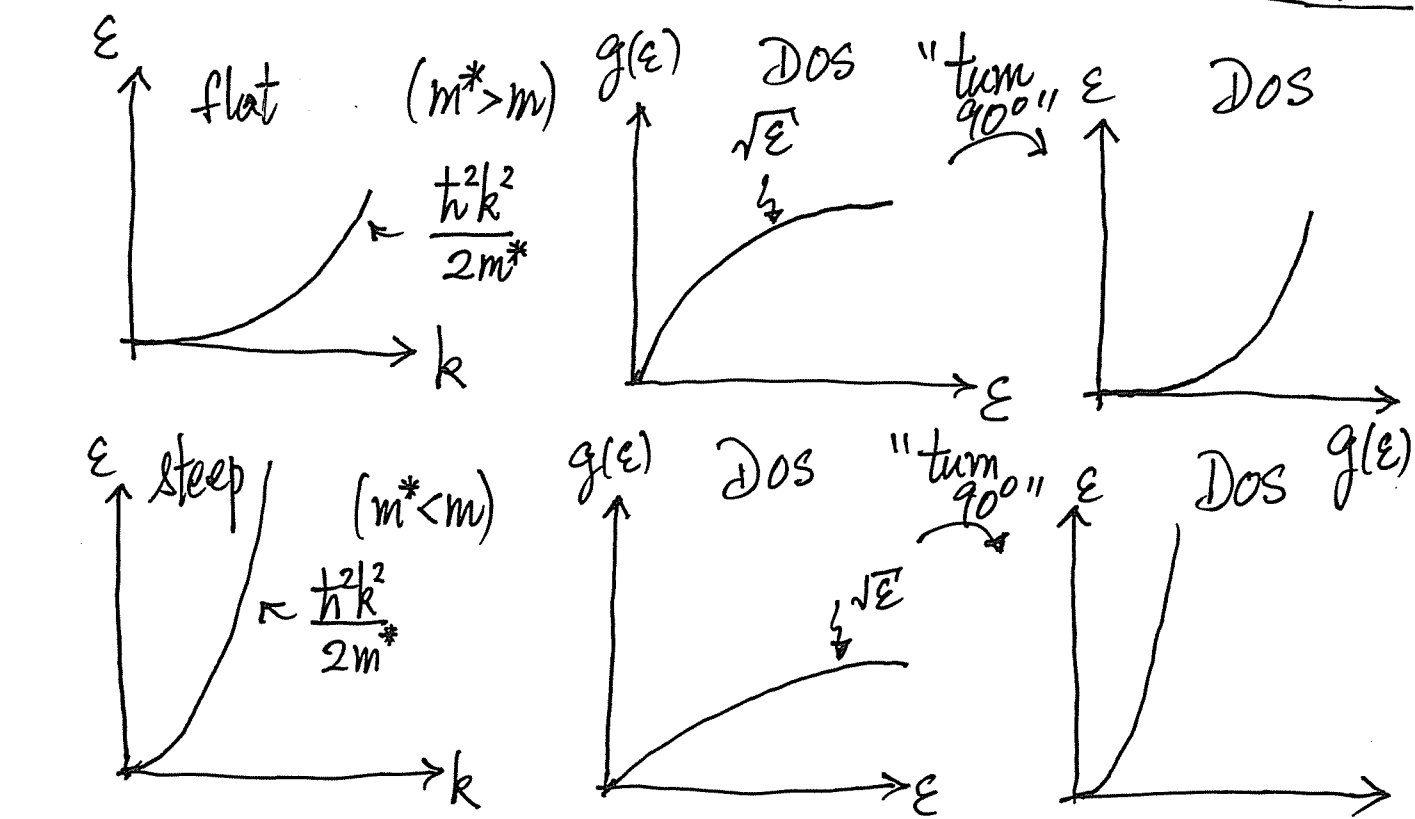 ε flat (m*>m)
ħ²k²
2m*
k
g(ε) DOS
√ε
ε
"turn
90°"
ε DOS
g(ε)
ε steep (m*<m)
ħ²k²
2m*
k
g(ε) DOS
√ε
ε
"turn
90°"
ε DOS